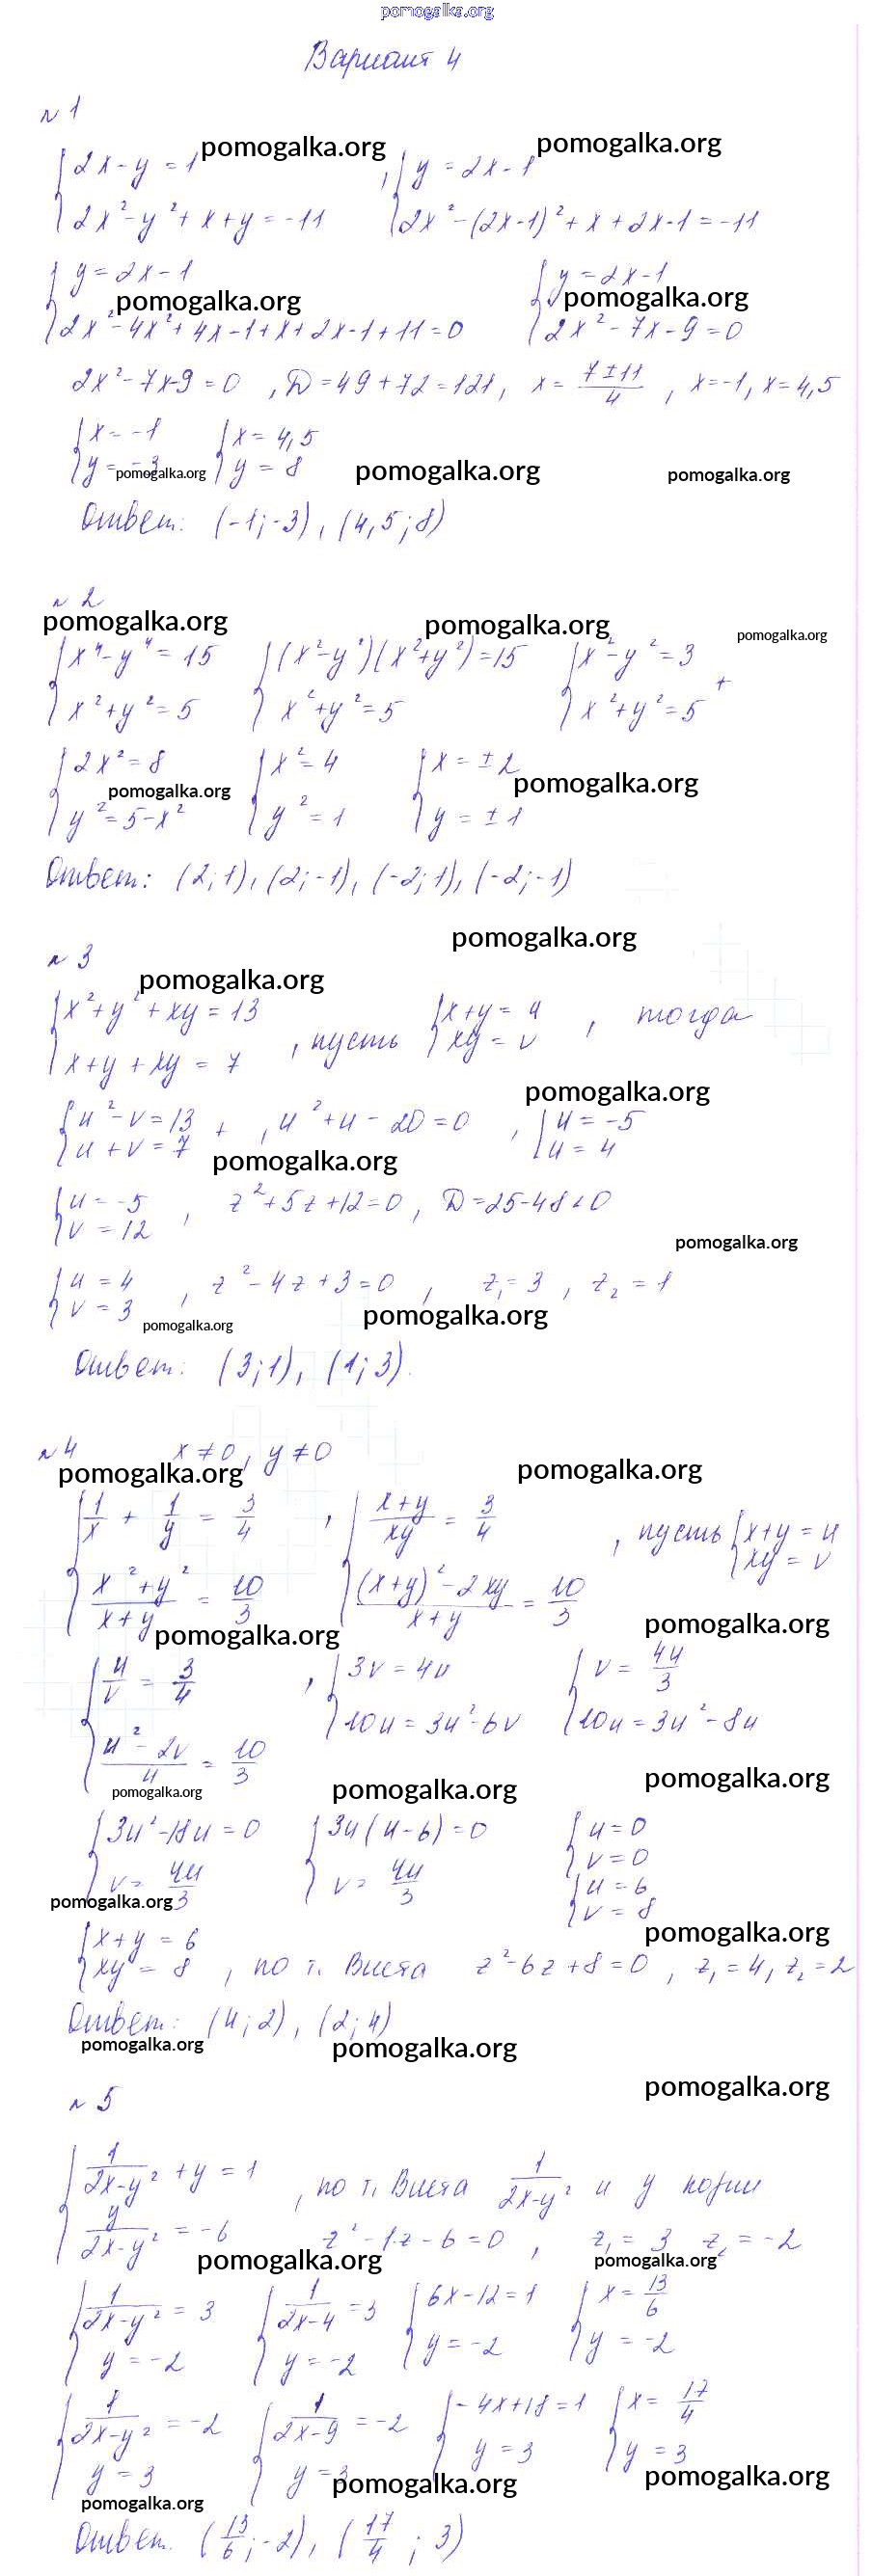 pomogalka.org
Вариант 4
№ 1
{ 2x - y = 1 pomogalka.org , { y = 2x - 1 pomogalka.org
2x² - y² + x + y = -11 2x² - (2x-1)² + x + 2x - 1 = -11
{ y = 2x - 1 { y = 2x - 1
pomogalka.org pomogalka.org
2x² - 4x² + 4x - 1 + x + 2x - 1 + 11 = 0 2x² - 7x - 9 = 0
2x² - 7x - 9 = 0 , D = 49 + 72 = 121, x = (7 ± 11)/4 , x = -1, x = 4,5
{ x = -1 { x = 4,5
y = -3 pomogalka.org y = 8 pomogalka.org pomogalka.org
Ответ: (-1; -3), (4,5; 8)
№ 2
pomogalka.org pomogalka.org pomogalka.org
{ x⁴ - y⁴ = 15 { (x² - y²)(x² + y²) = 15 { x² - y² = 3
x² + y² = 5 x² + y² = 5 x² + y² = 5 +
{ 2x² = 8 { x² = 4 { x = ±2
pomogalka.org pomogalka.org
y² = 5 - x² y² = 1 y = ±1
Ответ: (2; 1), (2; -1), (-2; 1), (-2; -1)
pomogalka.org
№ 3
pomogalka.org
{ x² + y² + xy = 13 { x + y = u
x + y + xy = 7 , пусть xy = v , тогда
pomogalka.org
{ u² - v = 13 + , u² + u - 20 = 0 , [ u = -5
u + v = 7 u = 4
pomogalka.org
{ u = -5 , z² + 5z + 12 = 0 , D = 25 - 48 < 0
v = 12
pomogalka.org
{ u = 4 , z² - 4z + 3 = 0 , z₁ = 3 , z₂ = 1
v = 3
pomogalka.org pomogalka.org
Ответ: (3; 1), (1; 3).
№ 4 x ≠ 0, y ≠ 0
pomogalka.org pomogalka.org
{ 1/x + 1/y = 3/4 , { (x+y)/xy = 3/4 , пусть { x + y = u
(x² + y²)/(x+y) = 10/3 ((x+y)² - 2xy)/(x+y) = 10/3 xy = v
pomogalka.org pomogalka.org
{ u/v = 3/4 , { 3v = 4u { v = 4u/3
(u² - 2v)/u = 10/3 10u = 3u² - 6v 10u = 3u² - 8u
pomogalka.org pomogalka.org pomogalka.org
{ 3u² - 18u = 0 { 3u(u - 6) = 0 { u = 0
v = 4u/3 v = 4u/3 v = 0
{ u = 6
v = 8
pomogalka.org pomogalka.org
{ x + y = 6
xy = 8 , по т. Виета z² - 6z + 8 = 0 , z₁ = 4, z₂ = 2
Ответ: (4; 2), (2; 4)
pomogalka.org pomogalka.org
pomogalka.org
№ 5
{ 1/(2x-y²) + y = 1 , по т. Виета 1/(2x-y²) и y корни
y/(2x-y²) = -6 z² - 1·z - 6 = 0 , z₁ = 3 z₂ = -2
pomogalka.org pomogalka.org
{ 1/(2x-y²) = 3 { 1/(2x-4) = 3 { 6x - 12 = 1 { x = 13/6
y = -2 y = -2 y = -2 y = -2
{ 1/(2x-y²) = -2 { 1/(2x-9) = -2 { -4x + 18 = 1 { x = 17/4
y = 3 y = 3 y = 3 y = 3
pomogalka.org pomogalka.org pomogalka.org
Ответ. (13/6; -2), (17/4; 3)